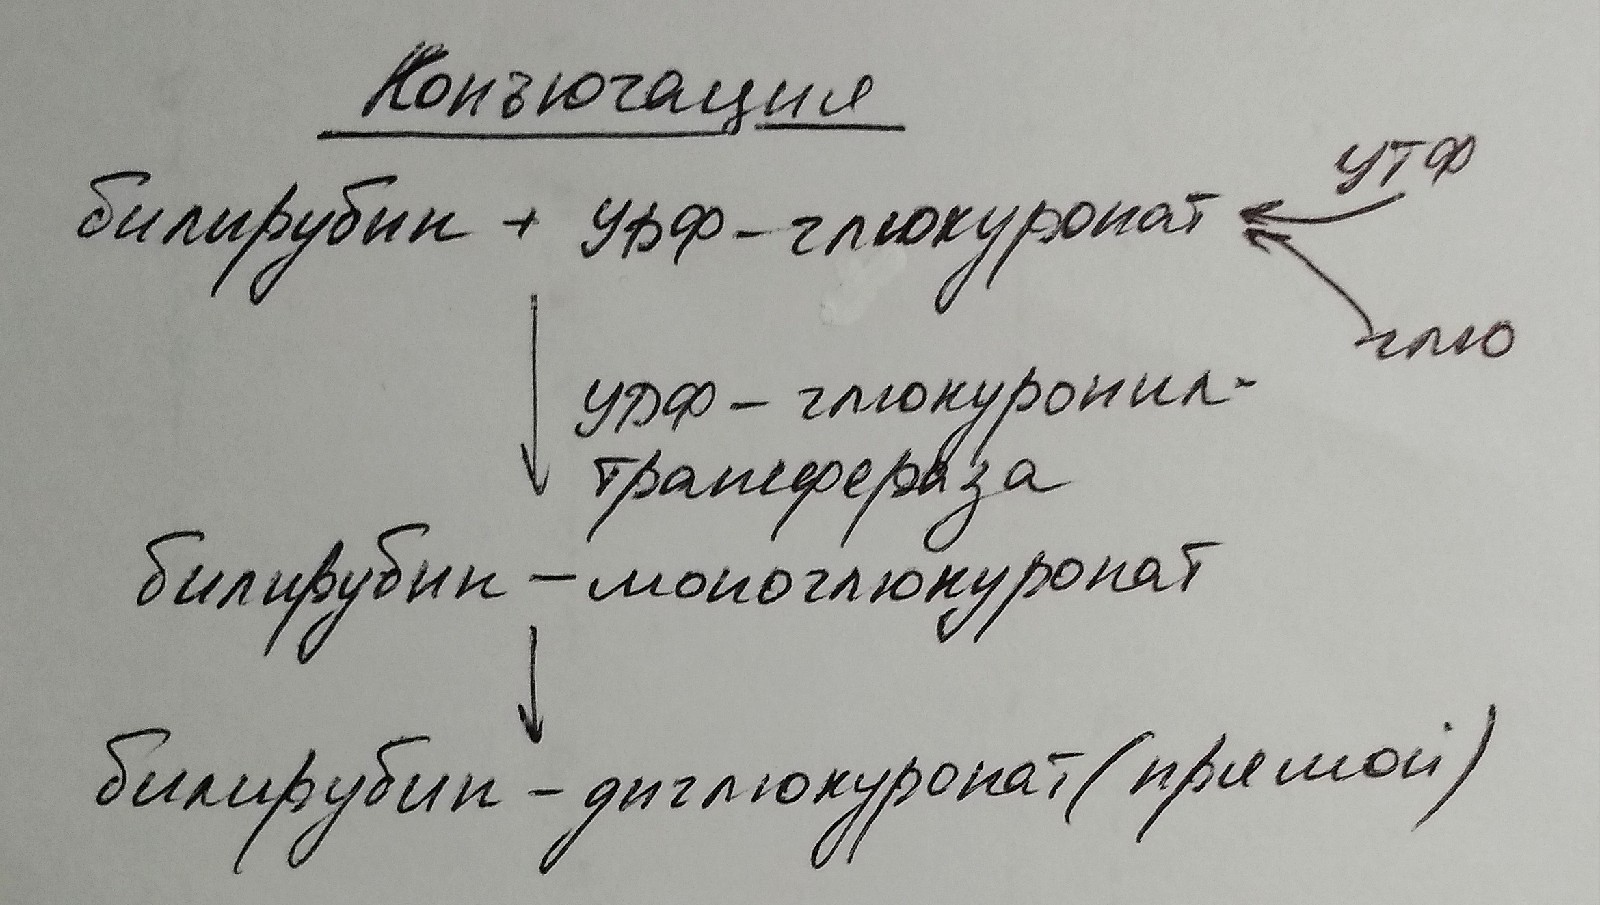 Конъюгация
УТФ
билирубин + УДФ - глюкуронат
глю
УДФ - глюкуронил-
трансфераза
билирубин - моноглюкуронат
билирубин - диглюкуронат (прямой)